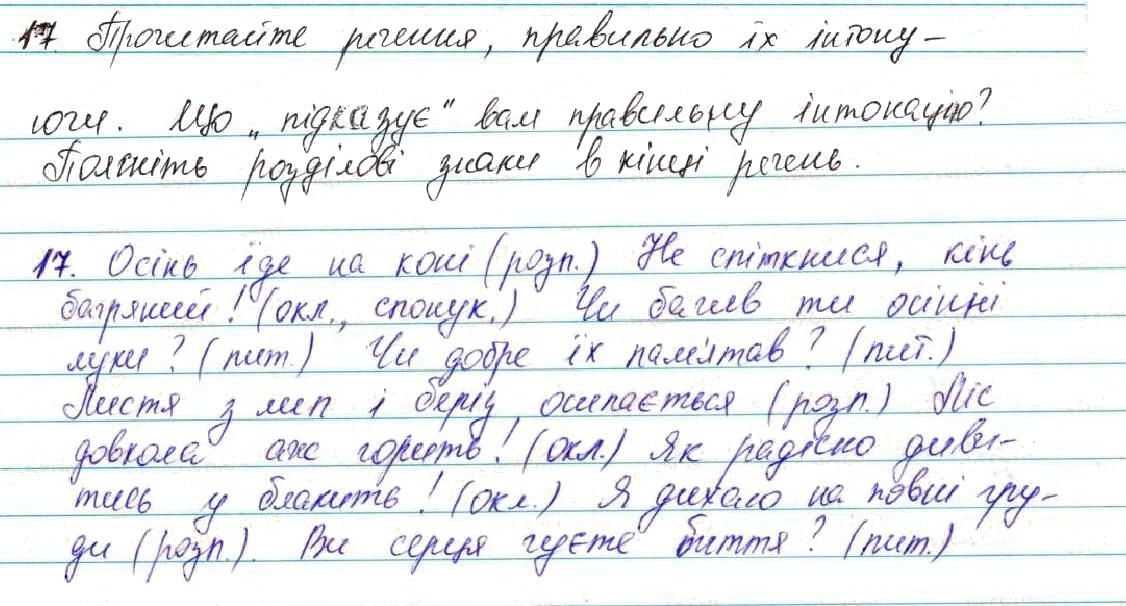 17. Прочитайте речення, правильно їх інтону-
ючи. Що „підказує" вам правильну інтонацію?
Поясніть розділові знаки в кінці речень.
17. Осінь їде на коні (розп.) Не спіткнися, кінь
багряний! (окл., спонук.) Чи бачив ти осінні
луки? (пит.) Чи добре їх пам'ятав? (пит.)
Листя з лип і беріз осипається (розп.) Ліс
довкола аж горить! (окл.) Як радісно диви-
тись у блакить! (окл.) Я дихаю на повні гру-
ди (розп.). Ви серця чуєте биття? (пит.)